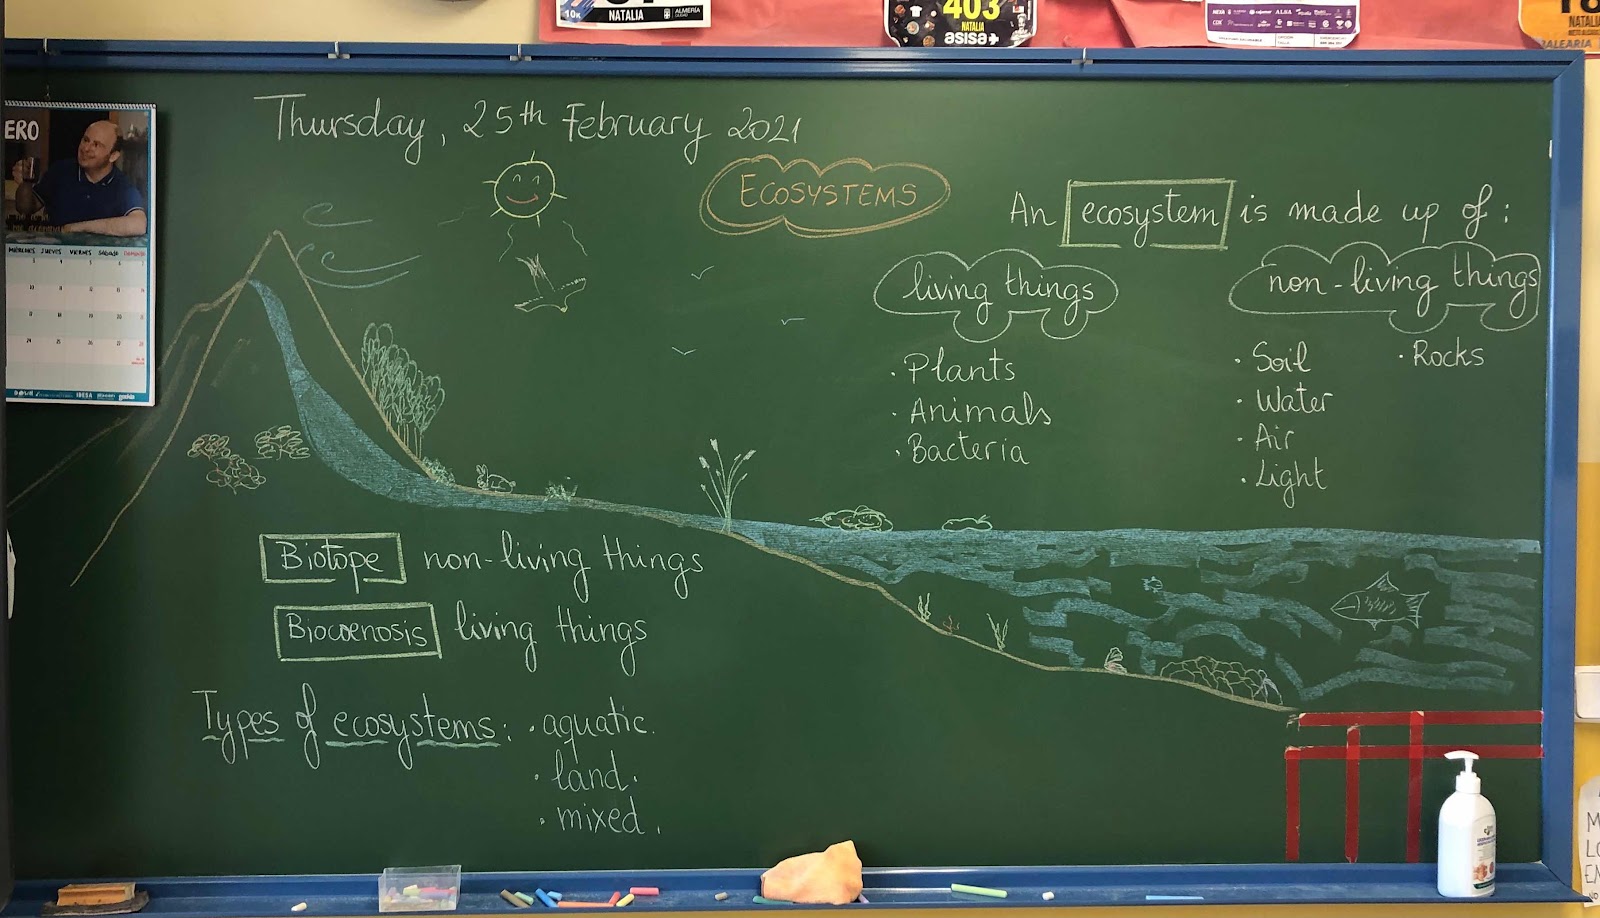 NATALIA
10K
ALMERÍA
CIUDAD
403
NATALIA
asisa+
NATALIA
BALEARIA
ERO
MIÉRCOLES JUEVES VIERNES SÁBADO DOMINGO
Thursday, 25th February 2021
ECOSYSTEMS
An ecosystem is made up of:
living things
· Plants
· Animals
· Bacteria
non-living things
· Soil
· Water
· Air
· Light
· Rocks
Biotope non-living things
Biocoenosis living things
Types of ecosystems: · aquatic.
· land.
· mixed.